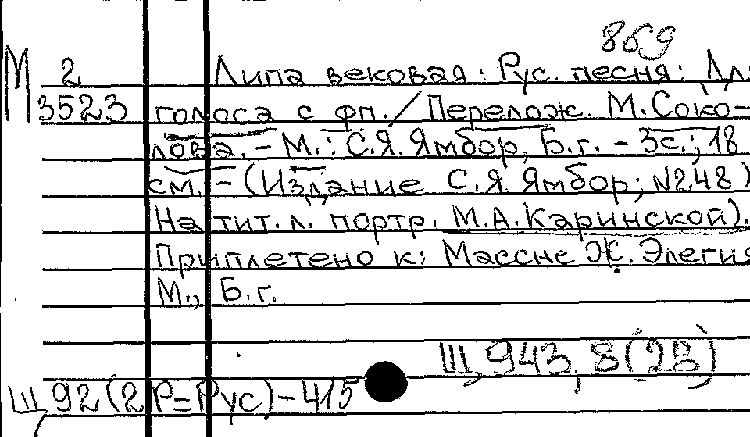 869
М 2 Липа вековая: Рус. песня: Для
3523 голоса с фп./ Перелож. М. Соко-
лова. - М.: С.Я. Ямбор, Б.г. - 3с.; 18
см. - (Издание С.Я. Ямбор; №248)
На тит. л. портр. М.А. Каринской).
Приплетено к: Массне Ж. Элегия
М., Б.г.
Щ 943,8(2В)
Щ 92(2Р=Рус)-415